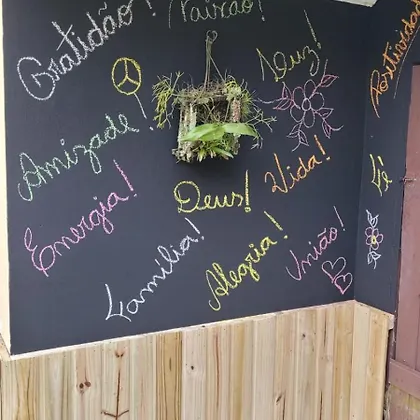 Gratidão!
Paixão!
Luz!
Positividade
Amizade!
Vida!
Fé
Deus!
Energia!
Família!
Alegria!
União!